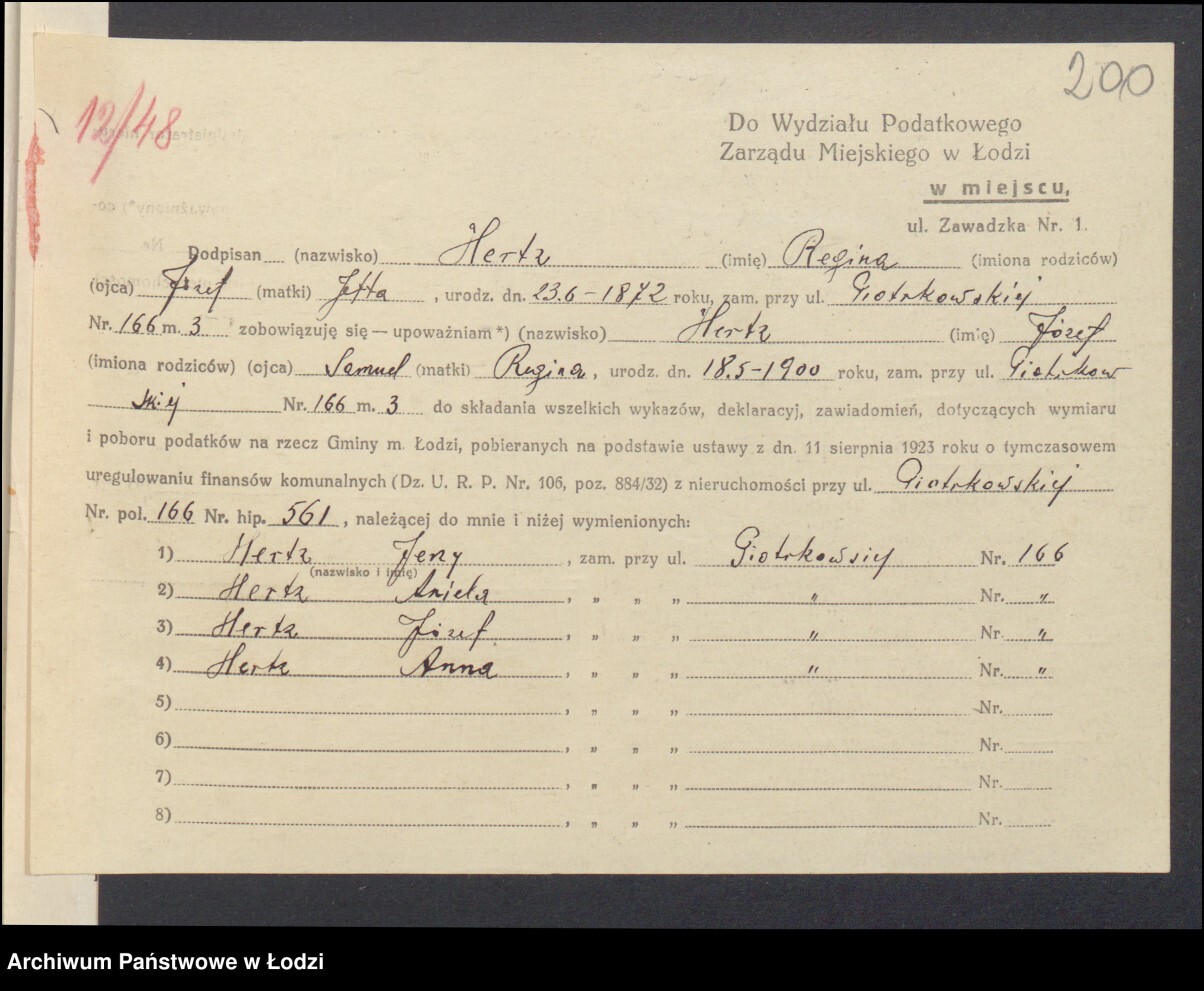 200
12/48
Do Wydziału Podatkowego
Zarządu Miejskiego w Łodzi
w miejscu,
ul. Zawadzka Nr. 1.
Podpisan (nazwisko) Hertz (imię) Regina (imiona rodziców)
(ojca) Józef (matki) Jetta, urodz. dn. 23.6-1872 roku, zam. przy ul. Piotrkowskiej
Nr. 166 m. 3 zobowiązuję się — upoważniam *) (nazwisko) Hertz (imię) Józef
(imiona rodziców) (ojca) Samuel (matki) Regina, urodz. dn. 18.5-1900 roku, zam. przy ul. Piotrkow
skiej Nr. 166 m. 3 do składania wszelkich wykazów, deklaracyj, zawiadomień, dotyczących wymiaru
i poboru podatków na rzecz Gminy m. Łodzi, pobieranych na podstawie ustawy z dn. 11 sierpnia 1923 roku o tymczasowem
uregulowaniu finansów komunalnych (Dz. U. R. P. Nr. 106, poz. 884/32) z nieruchomości przy ul. Piotrkowskiej
Nr. pol. 166 Nr. hip. 561, należącej do mnie i niżej wymienionych:
1) Hertz Jerzy, zam. przy ul. Piotrkowsiej Nr. 166
(nazwisko i imię)
2) Hertz Aniela, „ „ „ " Nr. "
3) Hertz Józef, „ „ „ " Nr. "
4) Hertz Anna, „ „ „ " Nr. "
5) , „ „ „ Nr.
6) , „ „ „ Nr.
7) , „ „ „ Nr.
8) , „ „ „ Nr.
Archiwum Państwowe w Łodzi